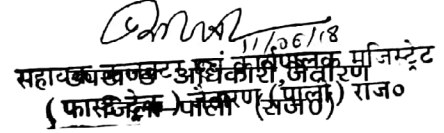 11/06/18
सहायक कलक्टर एवं कार्यपालक मजिस्ट्रेट
उपखण्ड अधिकारी, जैतारण
(फास्ट ट्रेक) जैतारण (पाली) राज०
जिला-पाली (राज०)